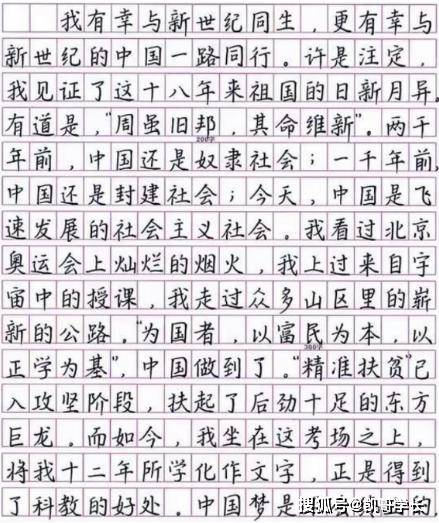 我有幸与新世纪同生，更有幸与
新世纪的中国一路同行。许是注定，
我见证了这十八年来祖国的日新月异。
有道是，“周虽旧邦，其命维新”。两千
200字
年前，中国还是奴隶社会；一千年前，
中国还是封建社会；今天，中国是飞
速发展的社会主义社会。我看过北京
奥运会上灿烂的烟火，我上过来自宇
宙中的授课，我走过众多山区里的崭
新的公路。“为国者，以富民为本，以
300字
正学为基”，中国做到了。“精准扶贫”已
入攻坚阶段，扶起了后劲十足的东方
巨龙。而如今，我坐在这考场之上，
将我十二年所学化作文字，正是得到
了科教的好处。中国梦是
搜狐号@凯哥学长